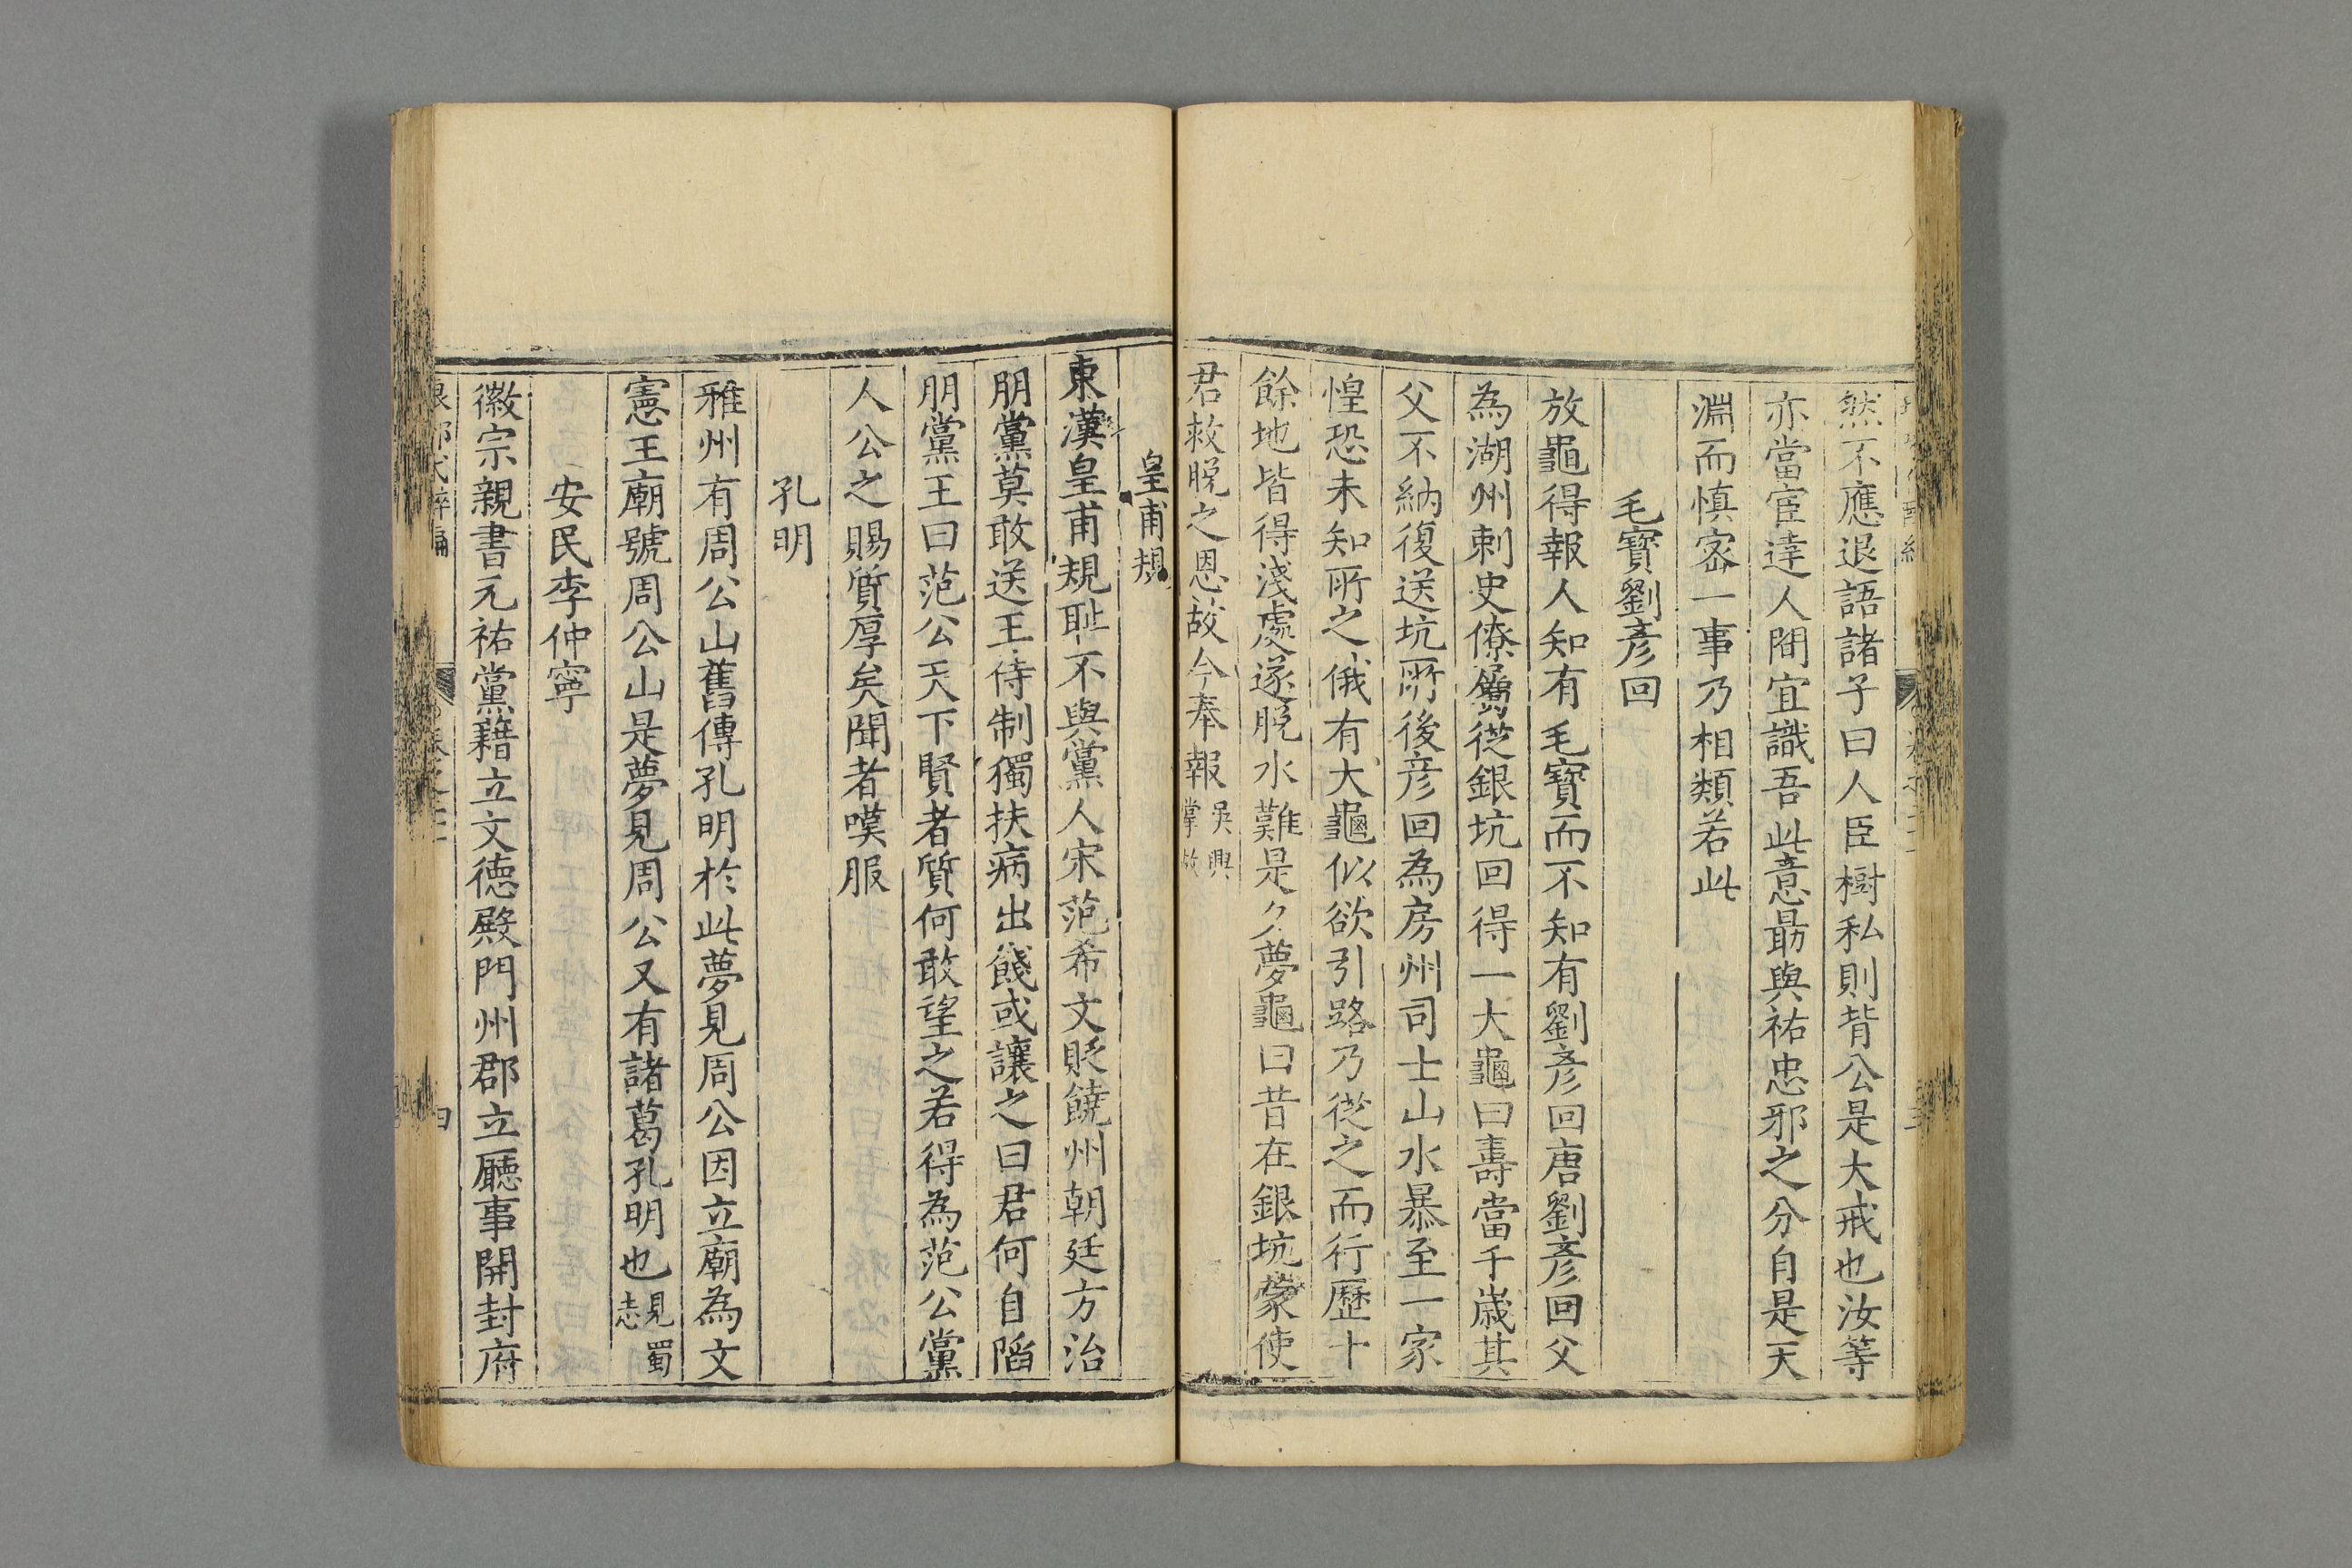 然不應退語諸子曰人臣樹私則背公是大戒也汝等
亦當宦達人間宜識吾此意最與祐忠邪之分自是天
淵而慎宻一事乃相類若此
毛寶劉彥回
放龜得報人知有毛寶而不知有劉彥回唐劉彥回父
為湖州刺史僚屬從銀坑回得一大龜曰壽當千歲其
父不納復送坑所後彥回為房州司士山水暴至一家
惶恐未知所之俄有大龜似欲引路乃從之而行歷十
餘地皆得淺處遂脫水難是夕夢龜曰昔在銀坑蒙使
君救脫之恩故今奉報吳興掌故
皇甫規
東漢皇甫規恥不與黨人宋范希文貶饒州朝廷方治
朋黨莫敢送王待制獨扶病出餞或讓之曰君何自陷
朋黨王曰范公天下賢者質何敢望之若得為范公黨
人公之賜質厚矣聞者嘆服
孔明
雅州有周公山舊傳孔明於此夢見周公因立廟為文
憲王廟號周公山是夢見周公又有諸葛孔明也見蜀志
安民李仲寧
徽宗親書元祐黨籍立文德殿門州郡立廳事開封府
四